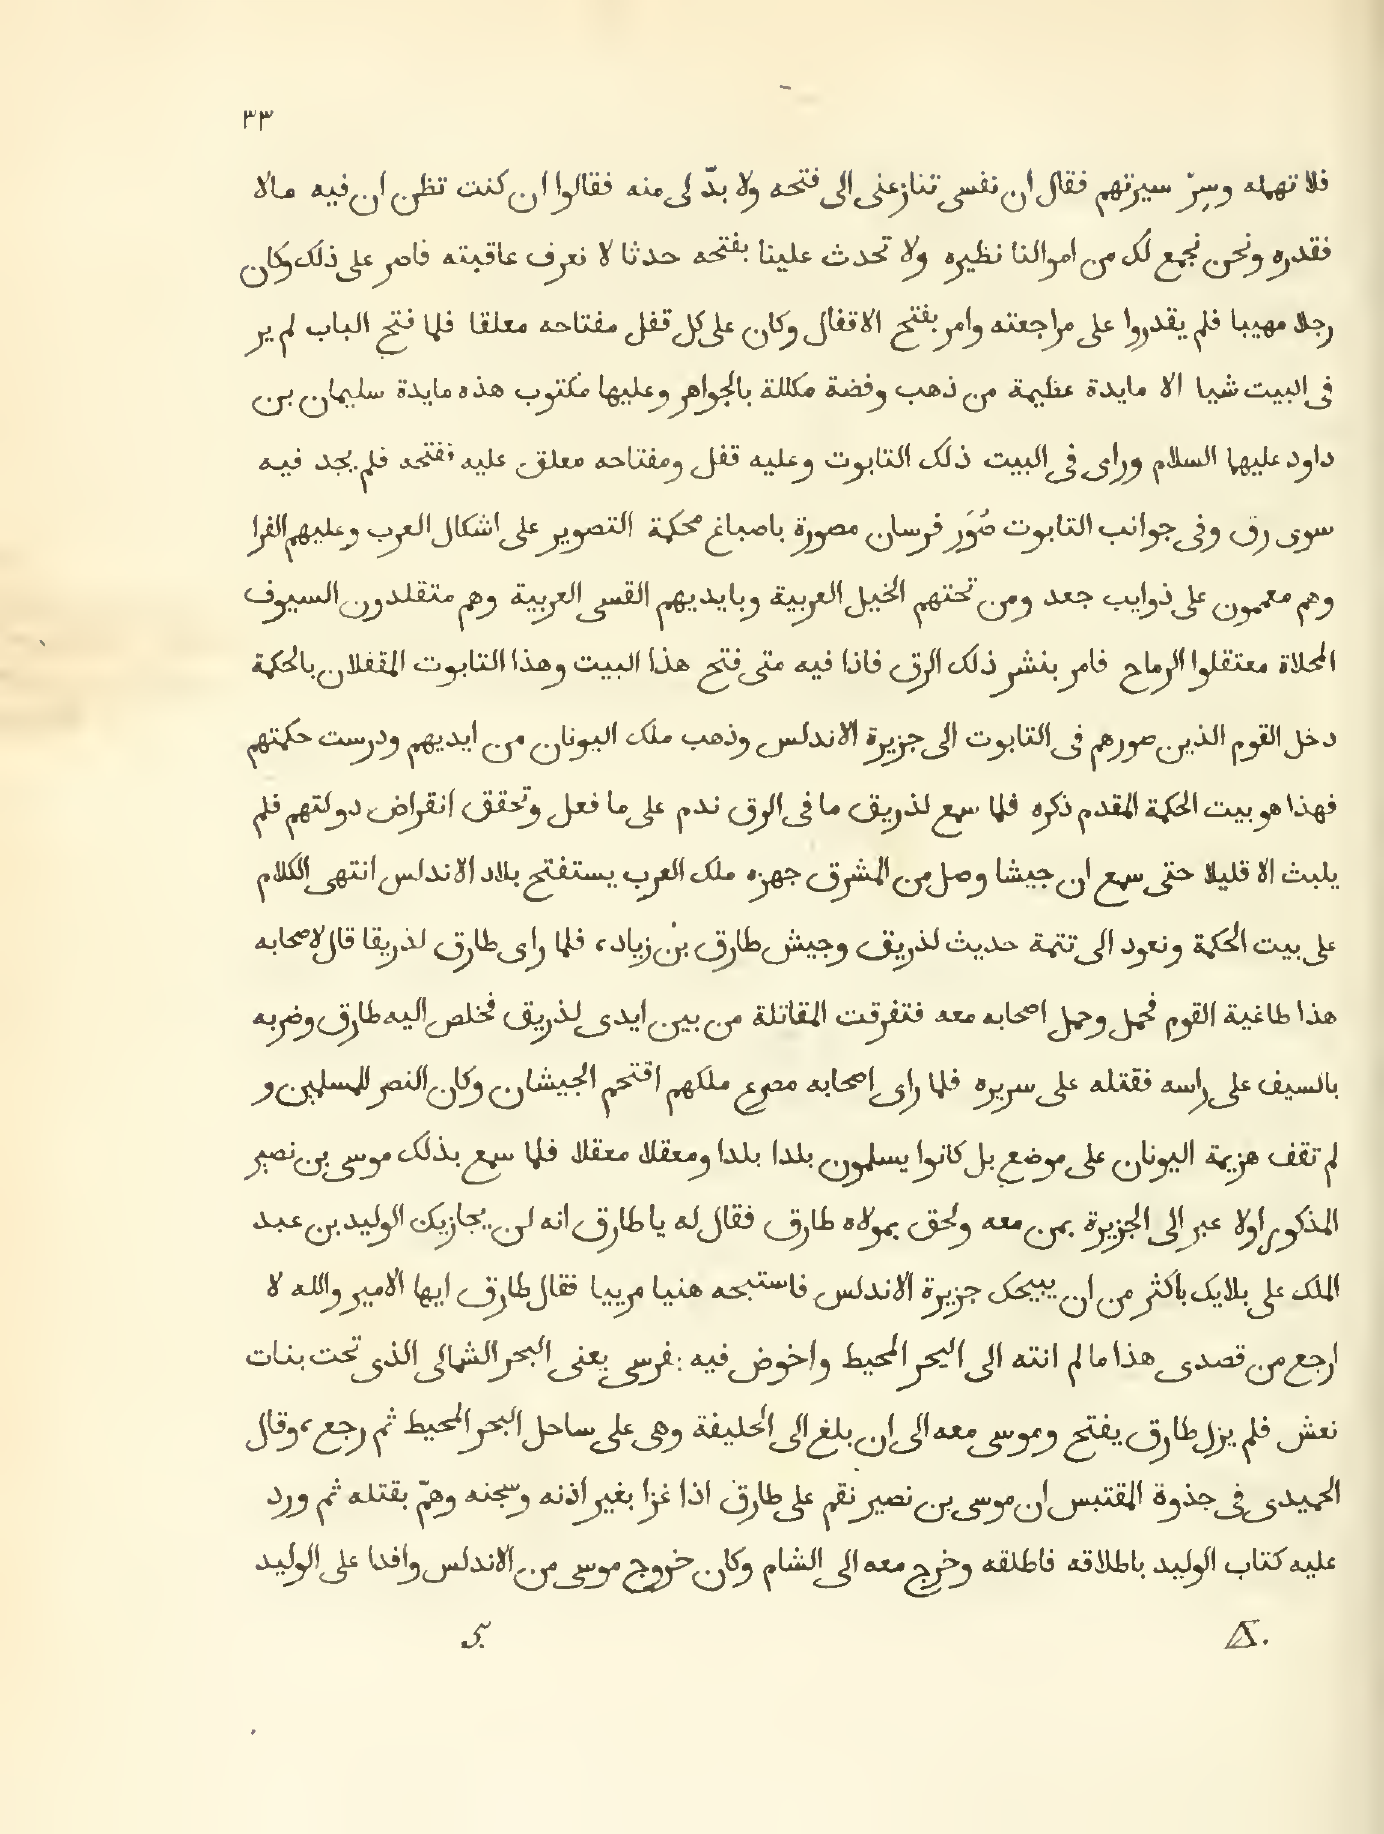 ٣٣
فلا تهمله وسِرّ سيرتهم فقال ان نفسى تنازعنى الى فتحه ولا بدّ لى منه فقالوا ان كنت تظن ان فيه مالا
فقدره ونحن نجمع لك من اموالنا نظيره ولا تحدث علينا بفتحه حدثا لا نعرف عاقبته فاصر على ذلك وكان
رجلا مهيبا فلم يقدروا على مراجعته وامر بفتح الاقفال وكان على كل قفل مفتاحه معلقا فلما فتح الباب لم ير
فى البيت شيا الا مايدة عظيمة من ذهب وفضة مكللة بالجواهر وعليها مكتوب هذه مايدة سليمان بن
داود عليهما السلام وراى فى البيت ذلك التابوت وعليه قفل ومفتاحه معلق عليه ففتحه فلم يجد فيه
سوى رق وفى جوانب التابوت صُوَر فرسان مصورة باصباغ محكمة التصوير على اشكال العرب وعليهم الفرا
وهم معممون على ذوايب جعد ومن تحتهم الخيل العربية وبايديهم القسى العربية وهم متقلدون السيوف
المحلاة معتقلوا الرماح فامر بنشر ذلك الرق فاذا فيه متى فتح هذا البيت وهذا التابوت المقفلان بالحكمة
دخل القوم الذين صورهم فى التابوت الى جزيرة الاندلس وذهب ملك اليونان من ايديهم ودرست حكمتهم
فهذا هو بيت الحكمة المقدم ذكره فلما سمع لذريق ما فى الرق ندم على ما فعل وتحقق انقراض دولتهم فلم
يلبث الا قليلا حتى سمع ان جيشا وصل من المشرق جهزه ملك العرب يستفتح بلاد الاندلس انتهى الكلام
على بيت الحكمة ونعود الى تتمة حديث لذريق وجيش طارق بن زياد، فلما راى طارق لذريقا قال لاصحابه
هذا طاغية القوم فحمل وحمل اصحابه معه فتفرقت المقاتلة من بين ايدى لذريق فخلص اليه طارق وضربه
بالسيف على راسه فقتله على سريره فلما راى اصحابه مصرع ملكهم اقتحم الجيشان وكان النصر للمسلمين و
لم تقف هزيمة اليونان على موضع بل كانوا يسلمون بلدا بلدا ومعقلا معقلا فلما سمع بذلك موسى بن نصير
المذكور اولا عبر الى الجزيرة بمن معه ولحق بمولاه طارق فقال له يا طارق انه لن يجازيك الوليد بن عبد
الملك على بلايك باكثر من ان يبيحك جزيرة الاندلس فاستبحه هنيا مرييا فقال طارق ايها الامير والله لا
ارجع من قصدى هذا ما لم انته الى البحر المحيط واخوض فيه بفرسى يعنى البحر الشمالى الذى تحت بنات
نعش فلم يزل طارق يفتح وموسى معه الى ان بلغ الى الحليفة وهى على ساحل البحر المحيط ثم رجع، وقال
الحميدى فى جذوة المقتبس ان موسى بن نصير نقم على طارق اذا غزا بغير اذنه وسجنه وهمّ بقتله ثم ورد
عليه كتاب الوليد باطلاقه فاطلقه وخرج معه الى الشام وكان خروج موسى من الاندلس وافدا على الوليد